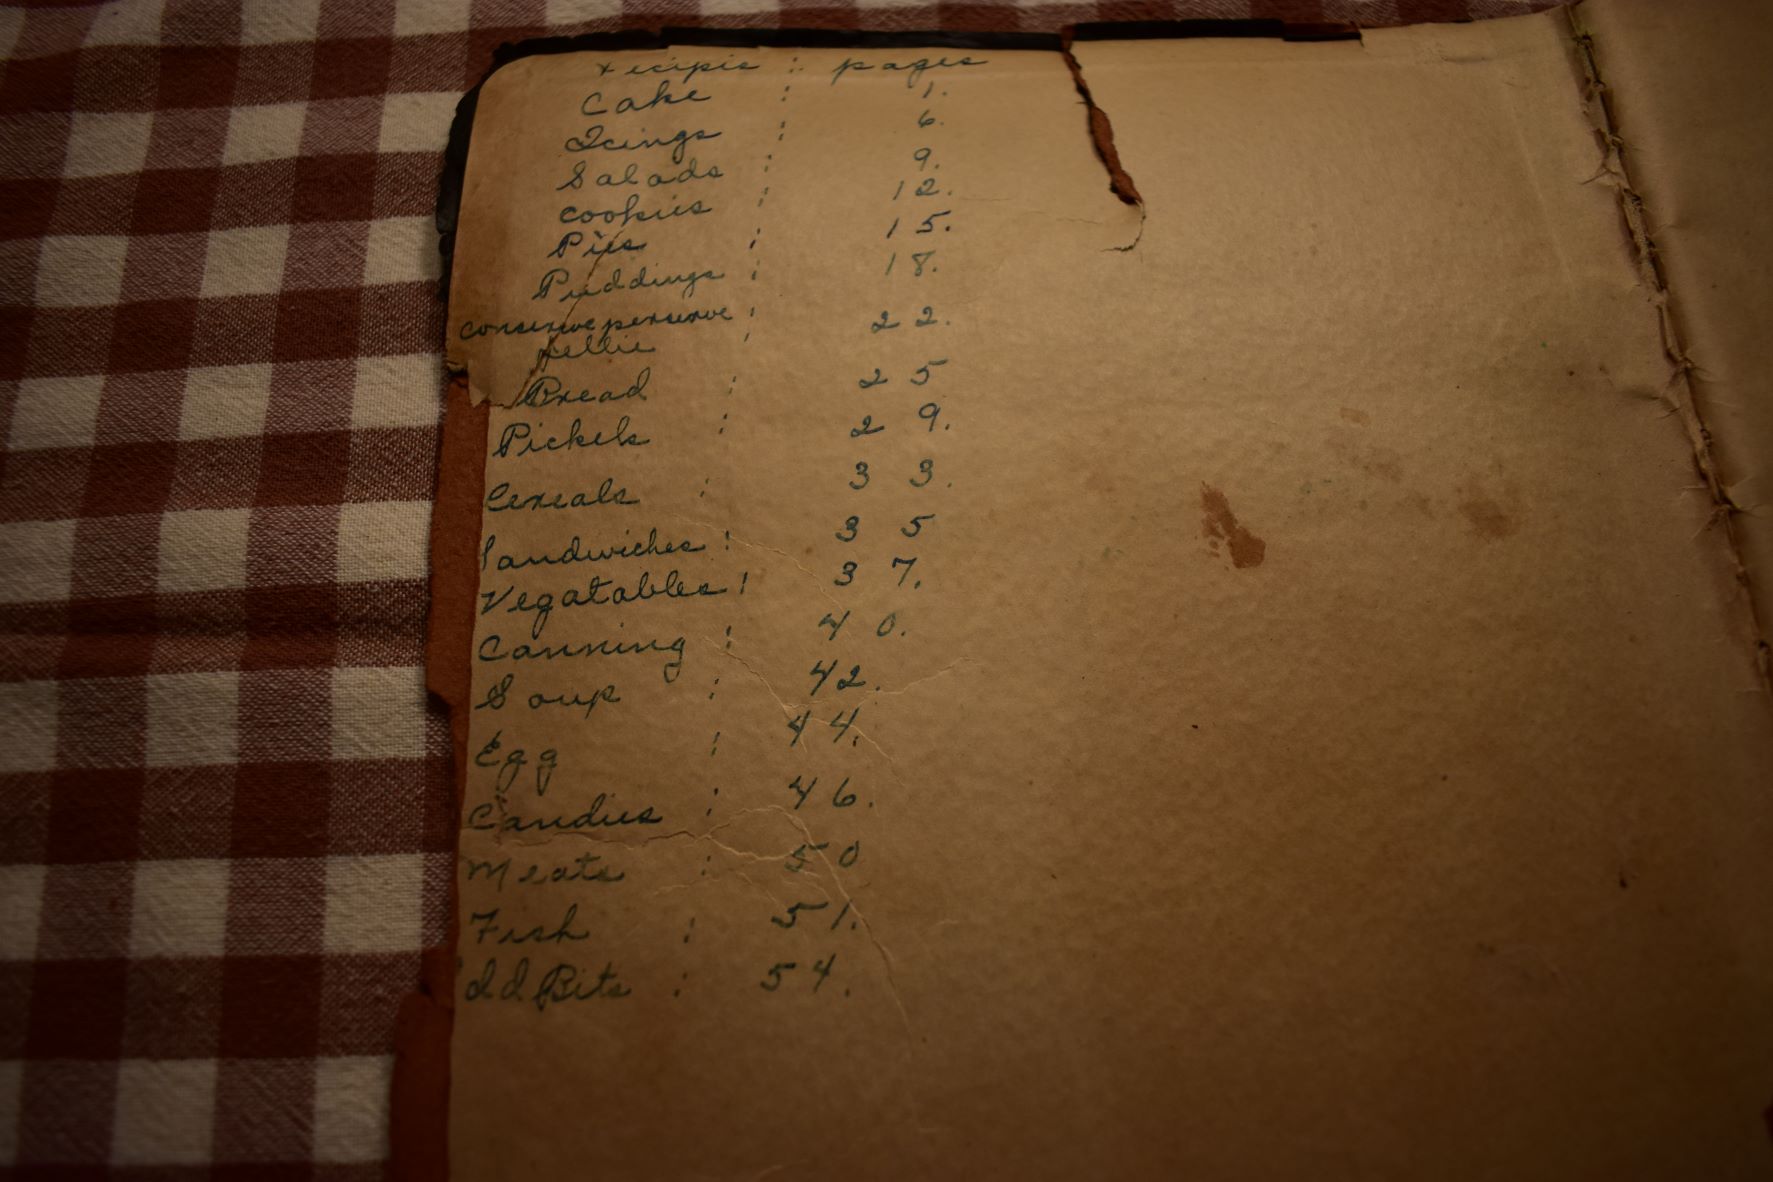 recipis : pages
Cake : 1.
Icings : 6.
Salads : 9.
cookies : 12.
Pies : 15.
Puddings : 18.
conserve perserve : 22.
jellie :
Bread : 25
Pickels : 29.
Cereals : 33.
Sandwiches : 35
Vegatables : 37.
Canning : 40.
Soup : 42.
Egg : 44.
Candies : 46.
Meats : 50
Fish : 51.
Odd Bits : 54.